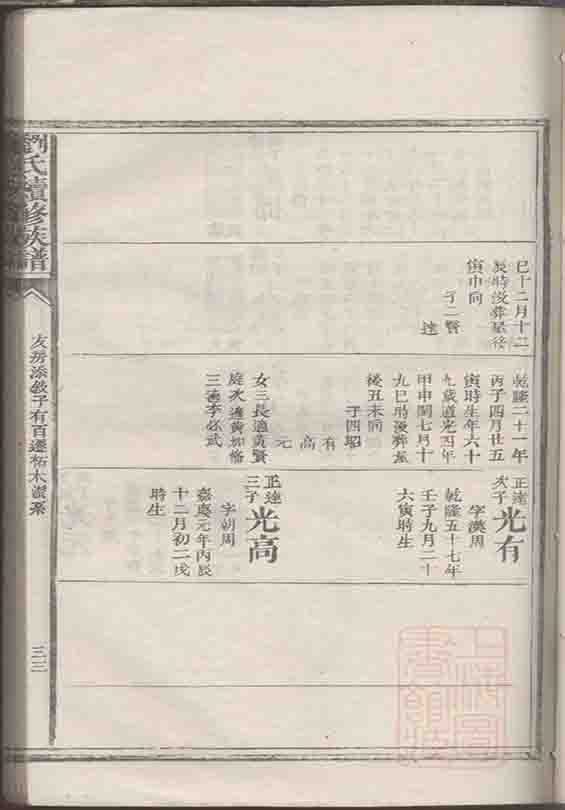 巳十二月十二
辰時沒葬屋後
寅申向
子二賢
達
乾隆二十一年
丙子四月廿五
寅時生年六十
九歲道光四年
甲申閏七月十
九巳時沒葬屋
後丑未向
子四昭
有
高
元
女三長適黃賢
庭次適黃如
三適李必武
正達
次子
光有
字漢周
乾隆五十七年
壬子九月二十
六寅時生
正達
三子
光高
字朝周
嘉慶元年丙辰
十二月初二戌
時生
劉氏續修族譜
友房添敘子有百遷柘木衝系
三三
上海圖書館藏